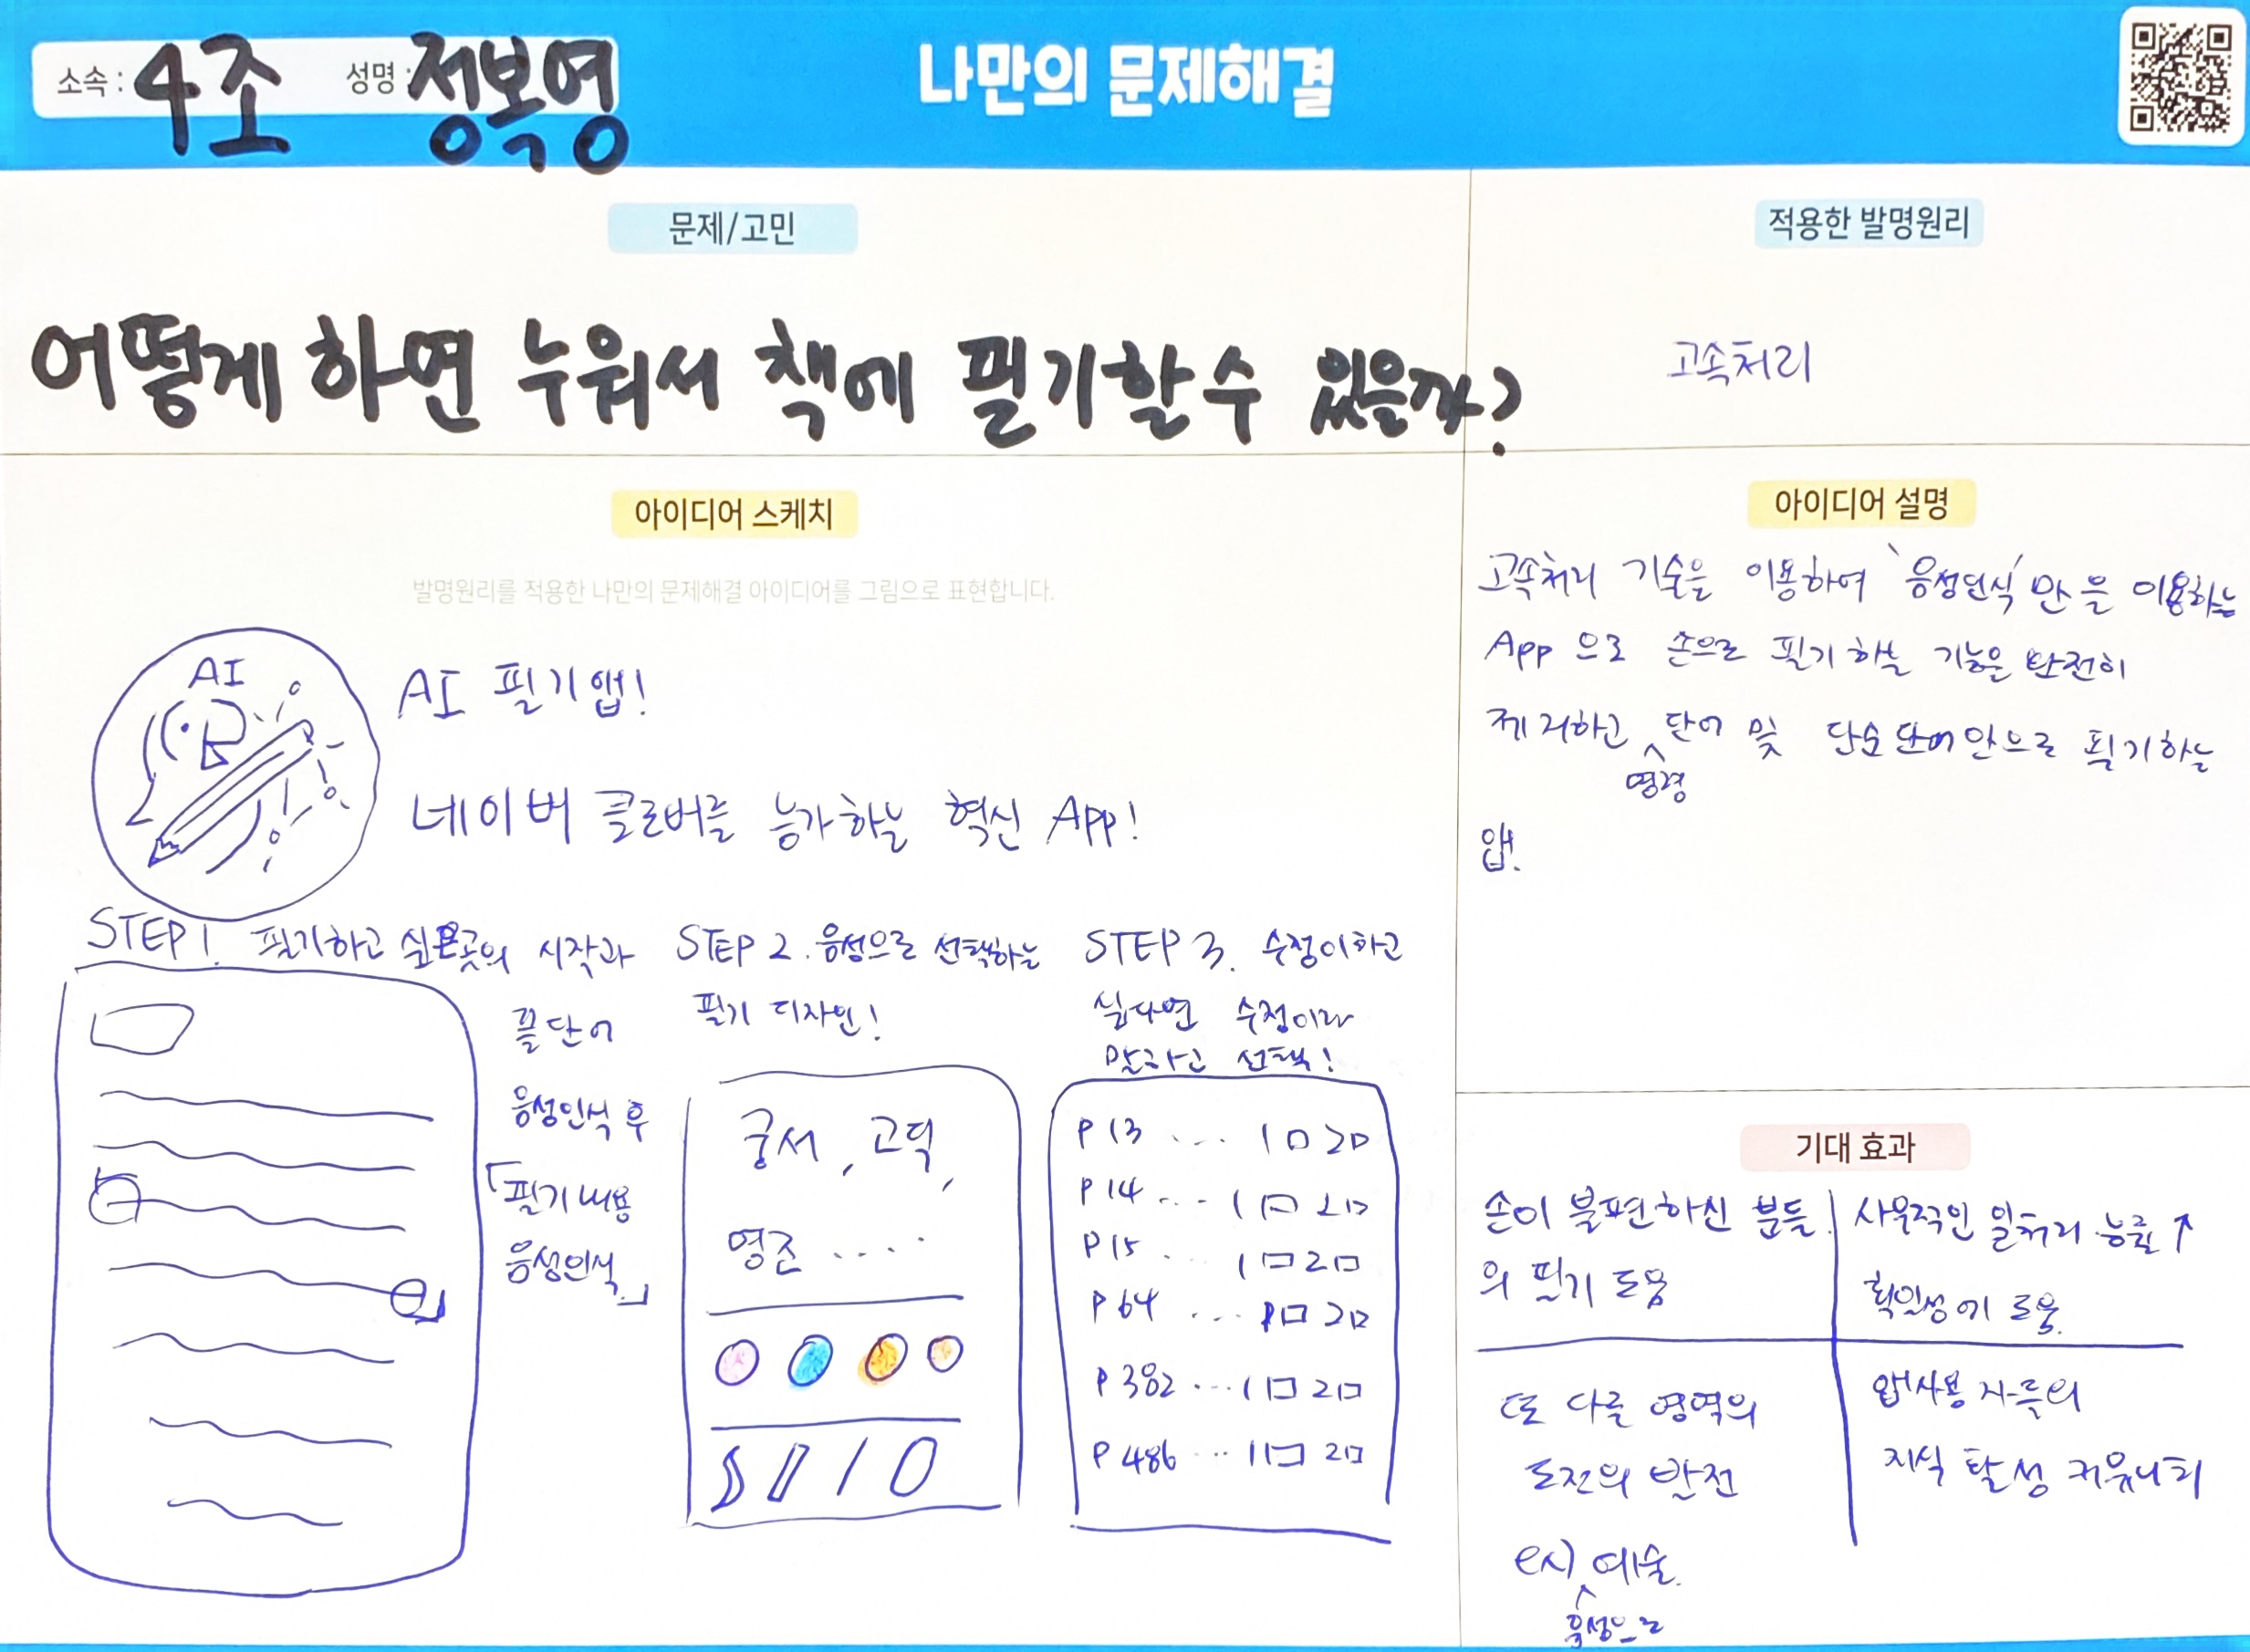 소속 : 4조 성명 : 정복영
나만의 문제해결
문제/고민
어떻게 하면 누워서 책에 필기할 수 있을까?
적용한 발명원리
고속처리
아이디어 스케치
발명원리를 적용한 나만의 문제해결 아이디어를 그림으로 표현합니다.
AI
AI 필기앱!
네이버 클로버를 능가하는 혁신 App!
STEP 1. 필기하고 싶은곳의 시작과
끝단어
음성인식 후
「필기내용
음성인식」
STEP 2. 음성으로 선택하는
필기 디자인!
궁서, 고딕,
명조 ....
STEP 3. 수정이하고
싶다면 수정이라
말하고 선택!
P 13 ... 1□ 2□
P 14 ... 1□ 2□
P 15 .. 1□ 2□
P 64 ... 1□ 2□
P 382 ... 1□ 2□
P 486 ... 1□ 2□
아이디어 설명
고속처리 기술을 이용하여 '음성인식'만을 이용하는
App 으로 손으로 필기하는 기능은 완전히
제거하고 명령 단어 및 단순단어만으로 필기하는
앱!
기대 효과
손이 불편하신 분들
의 필기 도움
사무적인 일처리 능률 ↑
확인성에 도움.
또 다른 영역의
도전의 발전
ex) 음성으로 예술.
앱사용자들의
지식 달성 커뮤니티